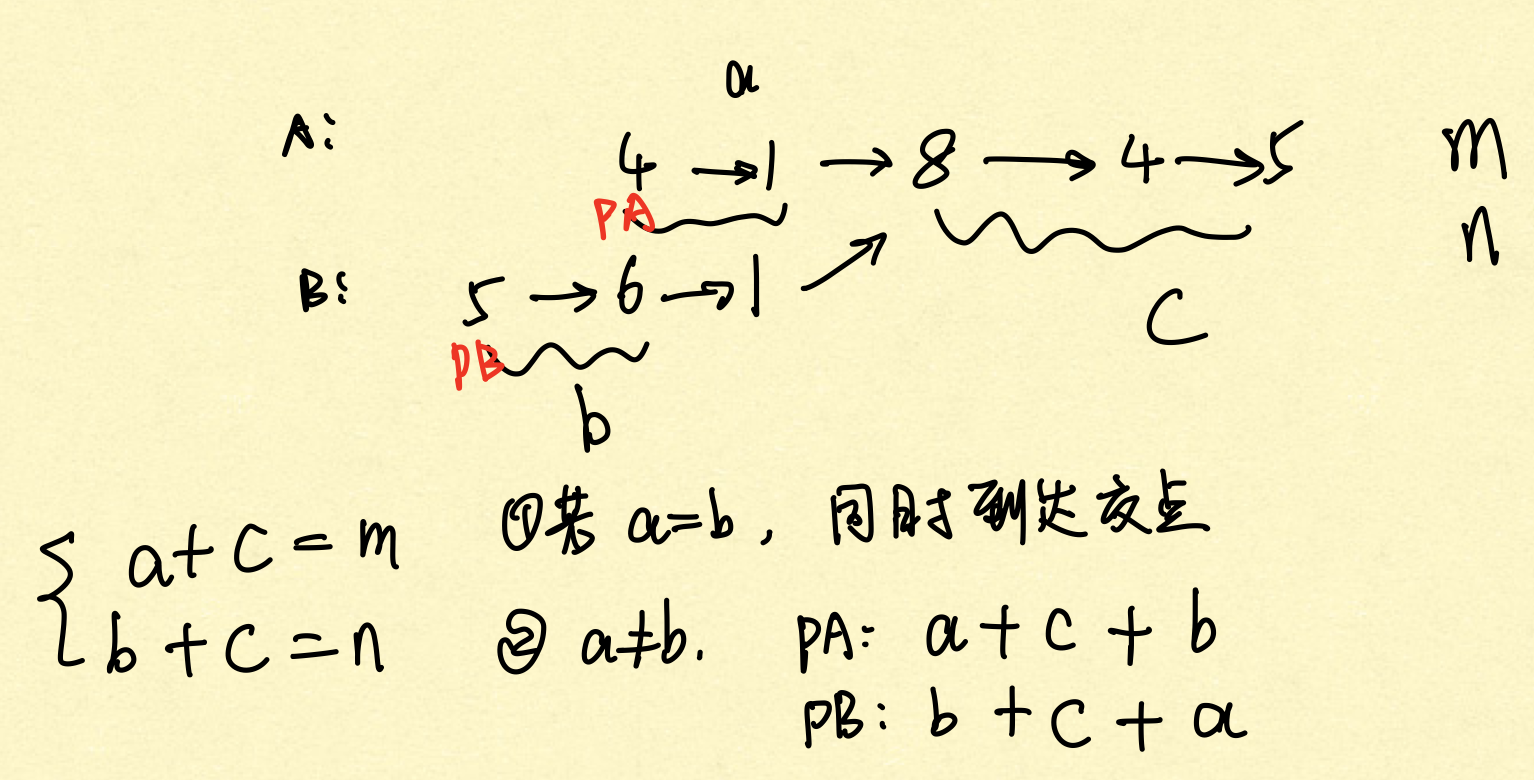 a
A: 4 → 1 → 8 → 4 → 5 m
PA
n
B: 5 → 6 → 1
C
PB
b
a + c = m
①若 a=b, 同时到达交点
b + c = n
② a≠b. PA: a + c + b
PB: b + c + a